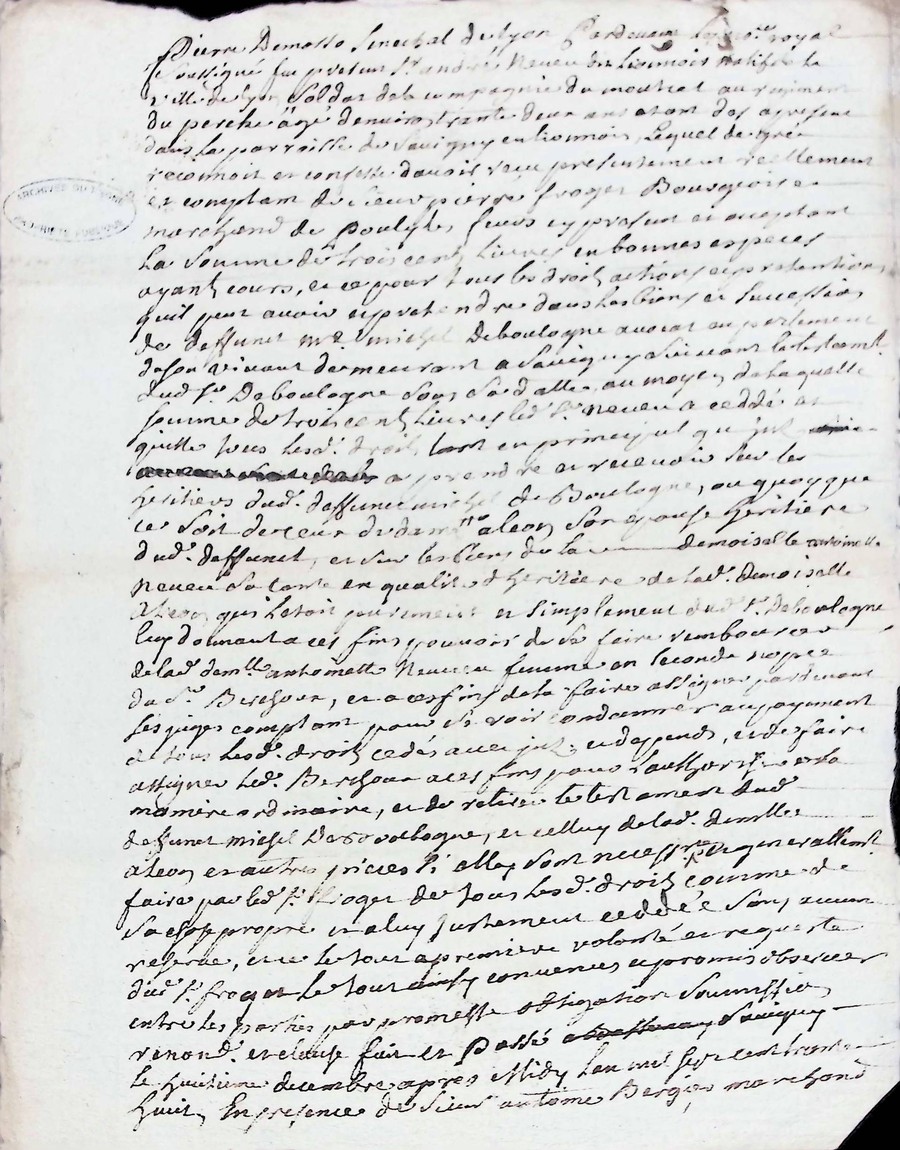 Pierre Demasso Senechal de Lyon Pardevant le no.re royal
soussigné fut present Sr. andré Neveu de Lionnois natif de la
ville de lyon Soldat de la compagnie du montrat au regiment
du perche agé d'environ trante deux ans etant de present
dans la parroisse de Savigny en lionnois, Lequel de gré
reconnoit et confesse d'avoir receu presentement reellement
et comptant de Sieur pierre froget Bourgeois et
marchand de Poulys fieurs cy present et acceptant
La Somme de trois cent livres en bonnes especes
ayant cours, et ce pour tous les droits actions et pretentions
qu'il peut avoir et pretendre dans les biens et Succession
de deffunct me. michel Deboulogne avocat au parlement
de son vivant demeurant a Savigny Suivant le testamt.
dud. Sr. Deboulogne Sous Sa datte, au moyen de laquelle
somme de trois cent livres led. Sr. neveu a ceddé et
quitte tous lesd. droits tant en principal qu'
a prendre et recevoir sur les
heritiers dud. deffunct michel de Boulogne, ou quoy que
ce soit de ceux de dam.lle aleon son epouse heritiere
dud. deffunct, et sur les biens de la demoiselle antoinette
Neveu Sa tante en qualité d'heritiere de lad. demoiselle
aleon qui l'etoit purement et simplement dud. Sr. Deboulogne
luy donnant a ces fins pouvoir de se faire rembourcer
de lad. dem.lle antoinette Neveu femme en seconde nopces
du Sr. Berthoux, et a ces fins de la faire assigner pardevant
les juges competant pour se voir condamner au payement
de tous lesd. droits cedés avec et depends, et de faire
assigner led. Berthoux a ces fins pour l'authoriser en la
maniere ordinaire, et de retirer le testament dud.
deffunct michel Deboulogne, et celluy de lad. demlle
aleon et autres pieces si elles sont necessres. et generallement
faire par led. Sr. froget de tous lesd. droits comme de
sa chose propre et a luy justement ceddée Sans aucune
reserve, et ce le tout a premiere volonté et requeste
dud. Sr. froget le tout ainsy convenu et promis observer
entre les parties par promesse obligation Soumission
renond. et clause fait et Passé Savigny
le huitieme decembre apres Midy l'an mil sept cent trante
huit, En presence de Sieur antoine Berger marchand